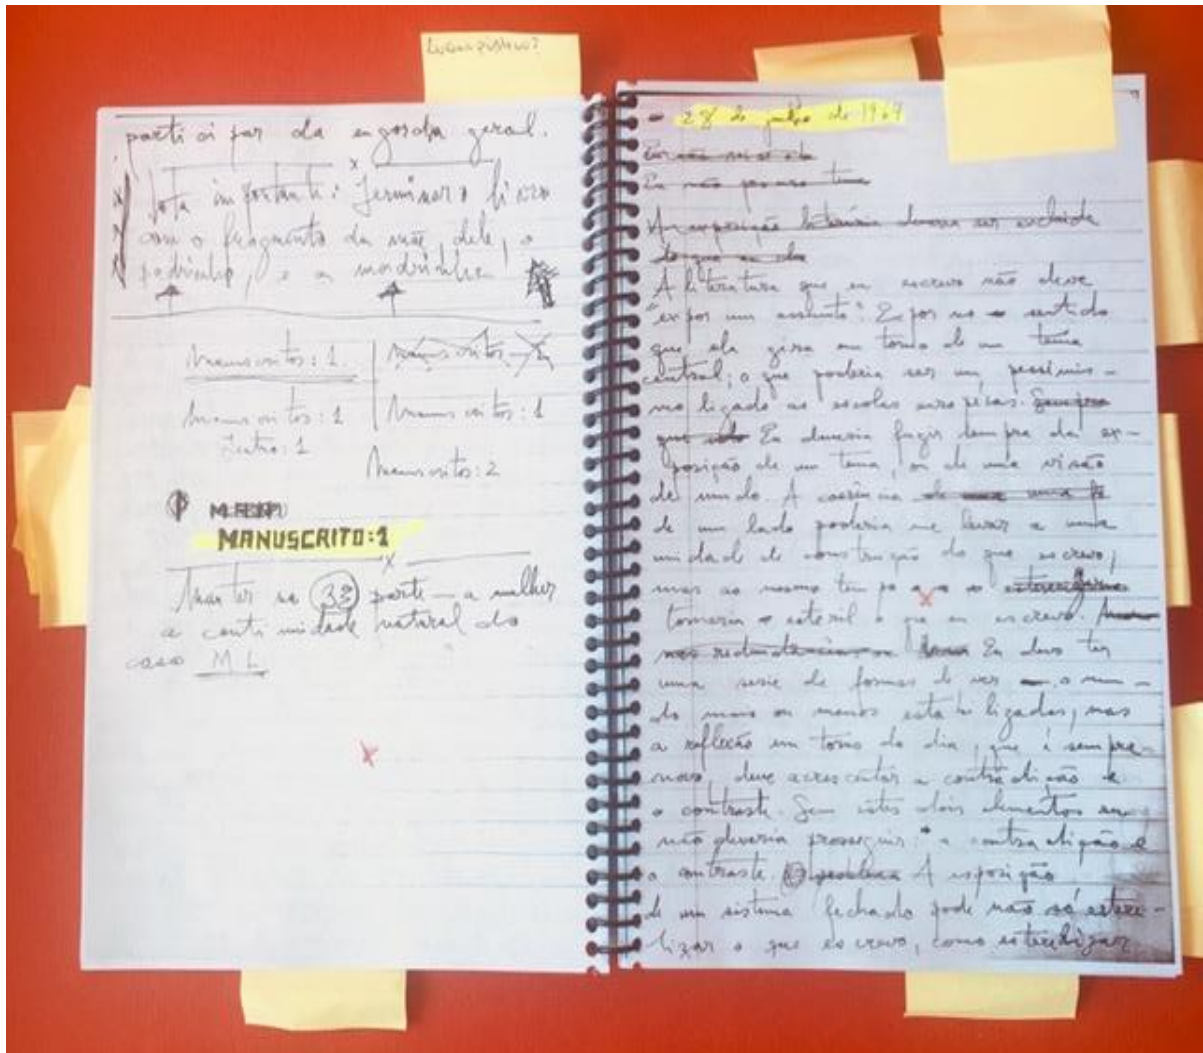 participar da engorda geral.
x
Nota importante: Terminar o livro
com o fragmento da mãe, dele, o
padrinho, e a madrinha
Manuscritos: 1.
Manuscritos: 2
Manuscritos: 1
Teatro: 1
Manuscritos: 1
Manuscritos: 2
MANUSCRITO:1
x
Manter na 3ª parte — a mulher
a continuidade natural do
caso M L
- 28 de julho de 1969
Eu não
Eu não posso tema
A exposição literária deveria ser excluida
do que eu
A literatura que eu escrevo não deve
"expor um assunto". Expor no sentido
que ela gira em torno de um tema
central; o que poderia ser um pessimis-
mo ligado as escolas européias. Sempre
que Eu deveria fugir sempre da ex-
posição de um tema, ou de uma visão
de mundo. A coerência de uma
de um lado poderia me levar a uma
unidade de construção do que escrevo,
mas ao mesmo tempo
tornaria esteril o que eu escrevo.
nas redundâncias ou Eu devo ter
uma serie de formas de ver o mun-
do mais ou menos estabelecidas, mas
a reflecão em torno do dia, que é sempre
novo, deve acrescentar a contradição e
o contraste. Sem êstes dois elementos eu
não deveria prosseguir: a contradição e
o contraste. O problema A exposição
de um sistema fechado pode não só esteri-
lizar o que escrevo, como esterilizar